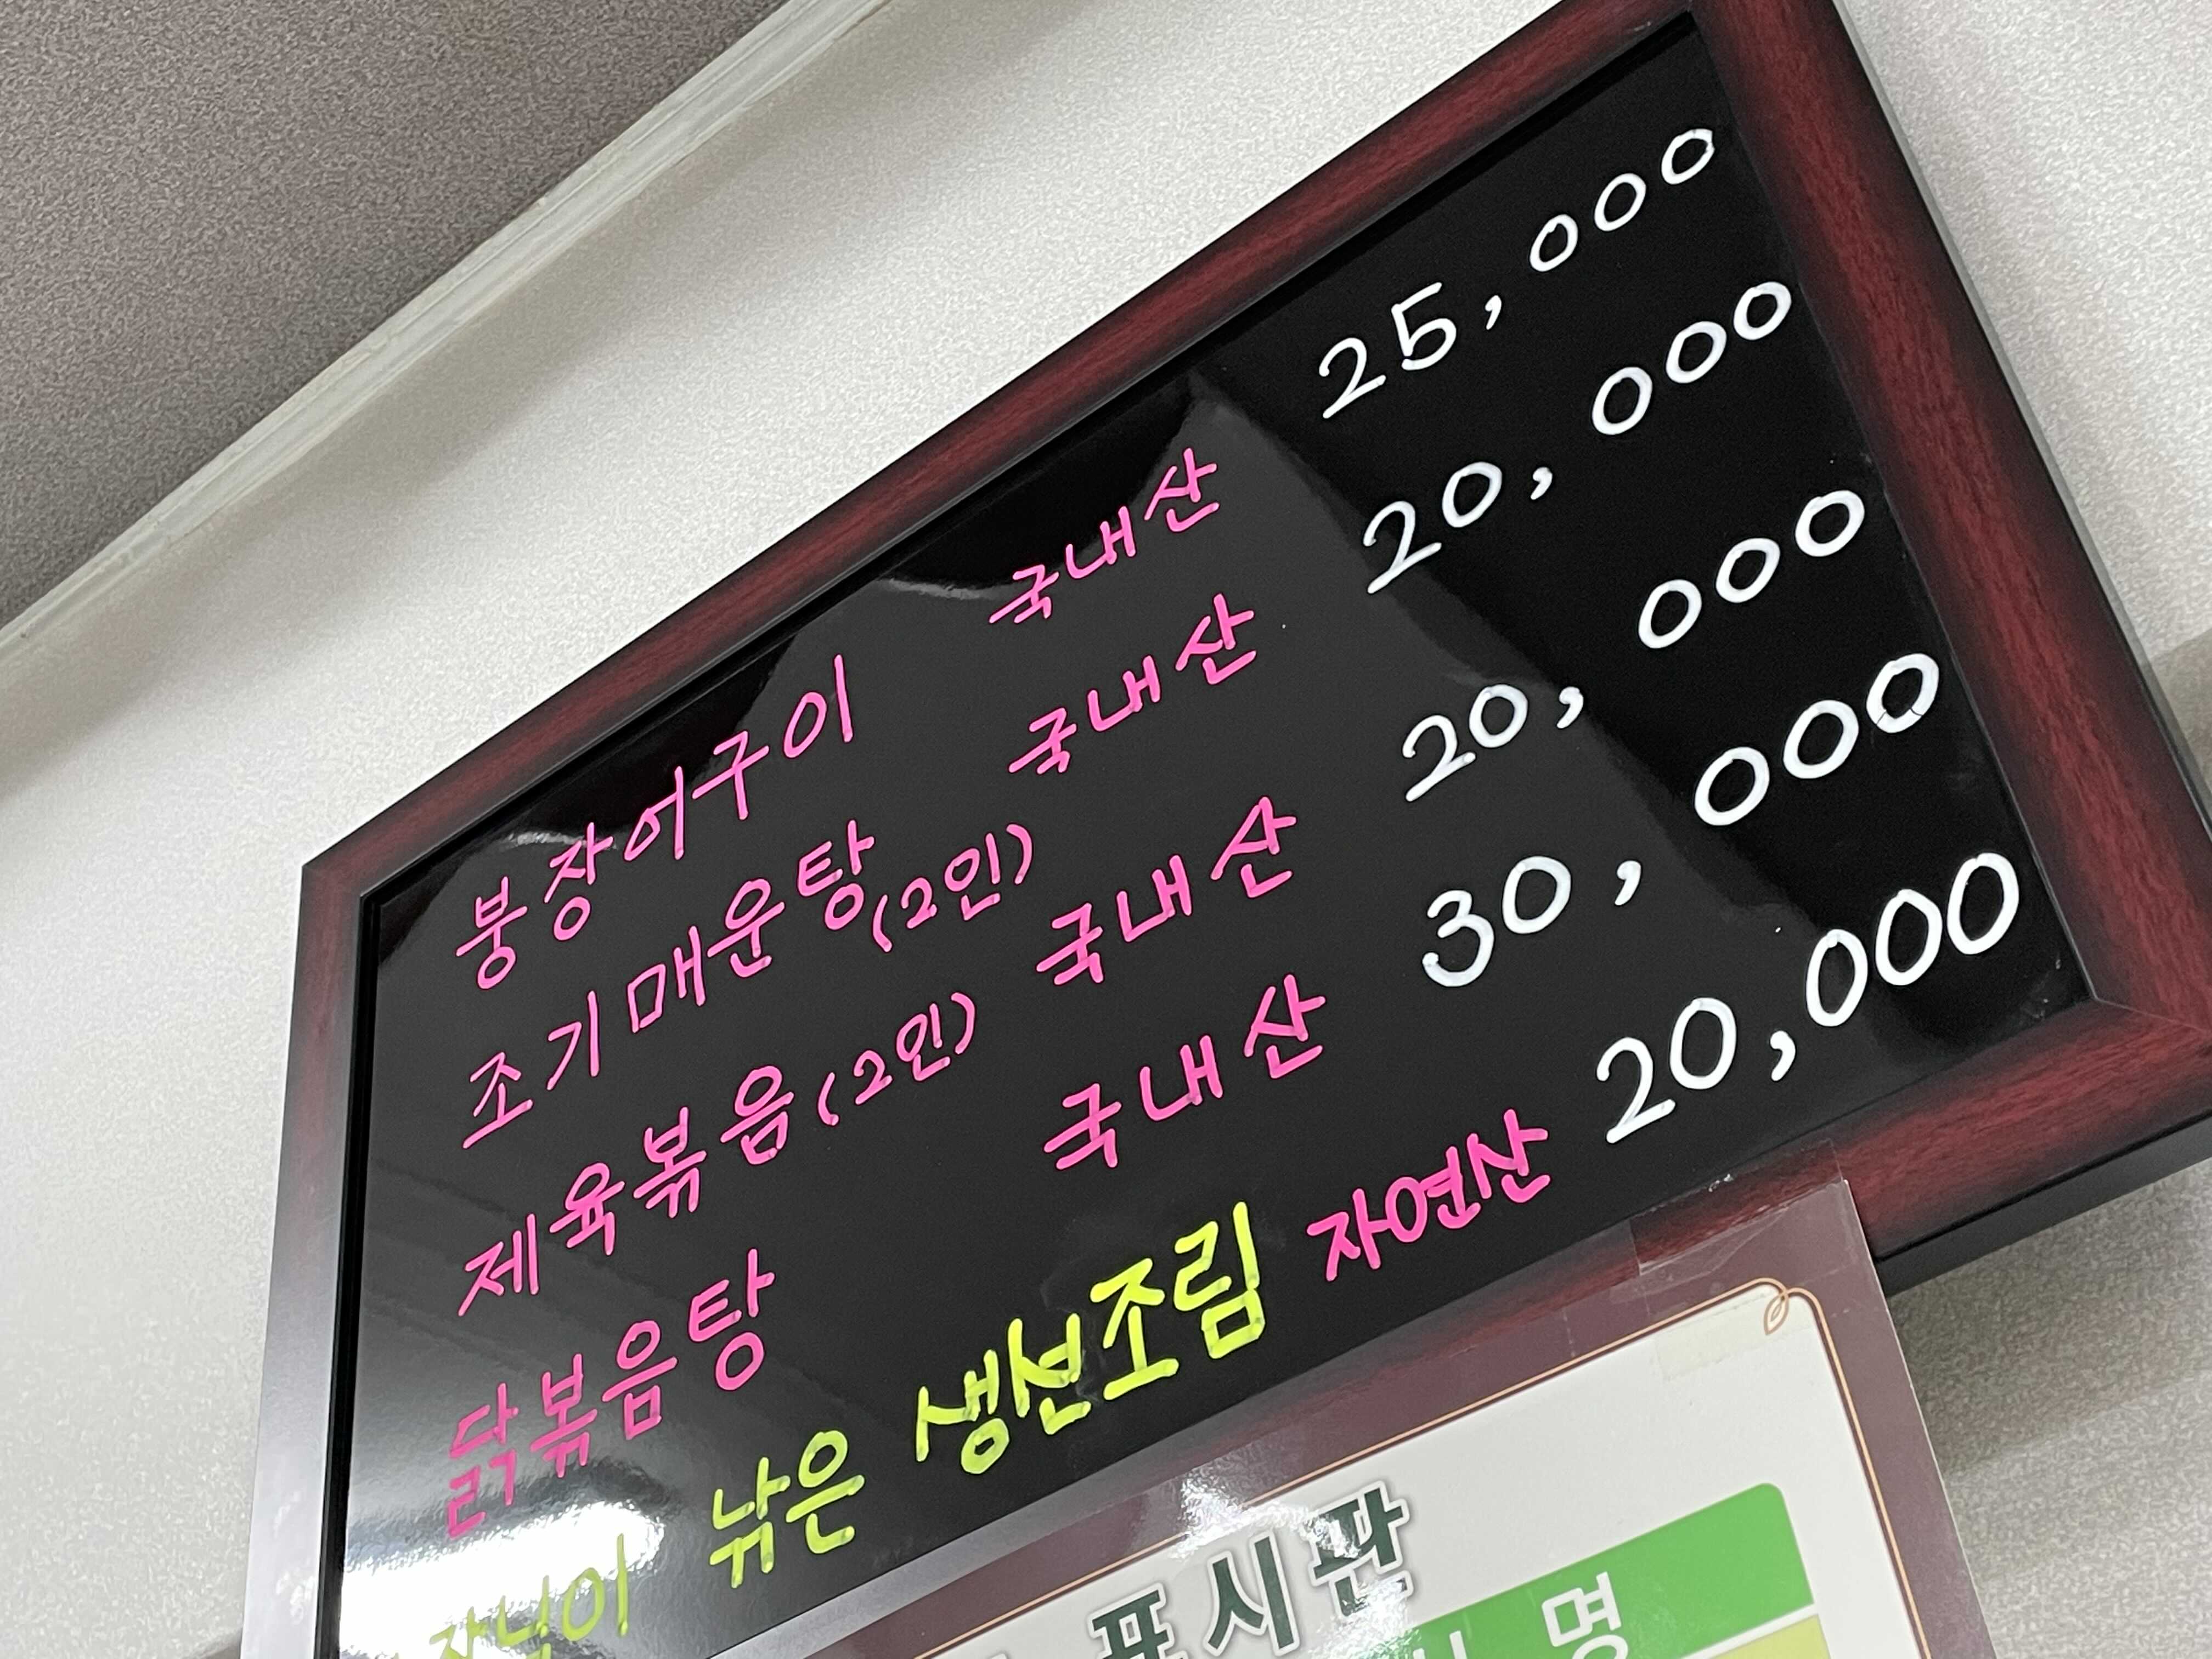 붕장어구이 국내산 25,000
조기매운탕(2인) 국내산 20,000
제육볶음(2인) 국내산 20,000
닭볶음탕 국내산 30,000
장님이 낚은 생선조림 자연산 20,000
표시판
명